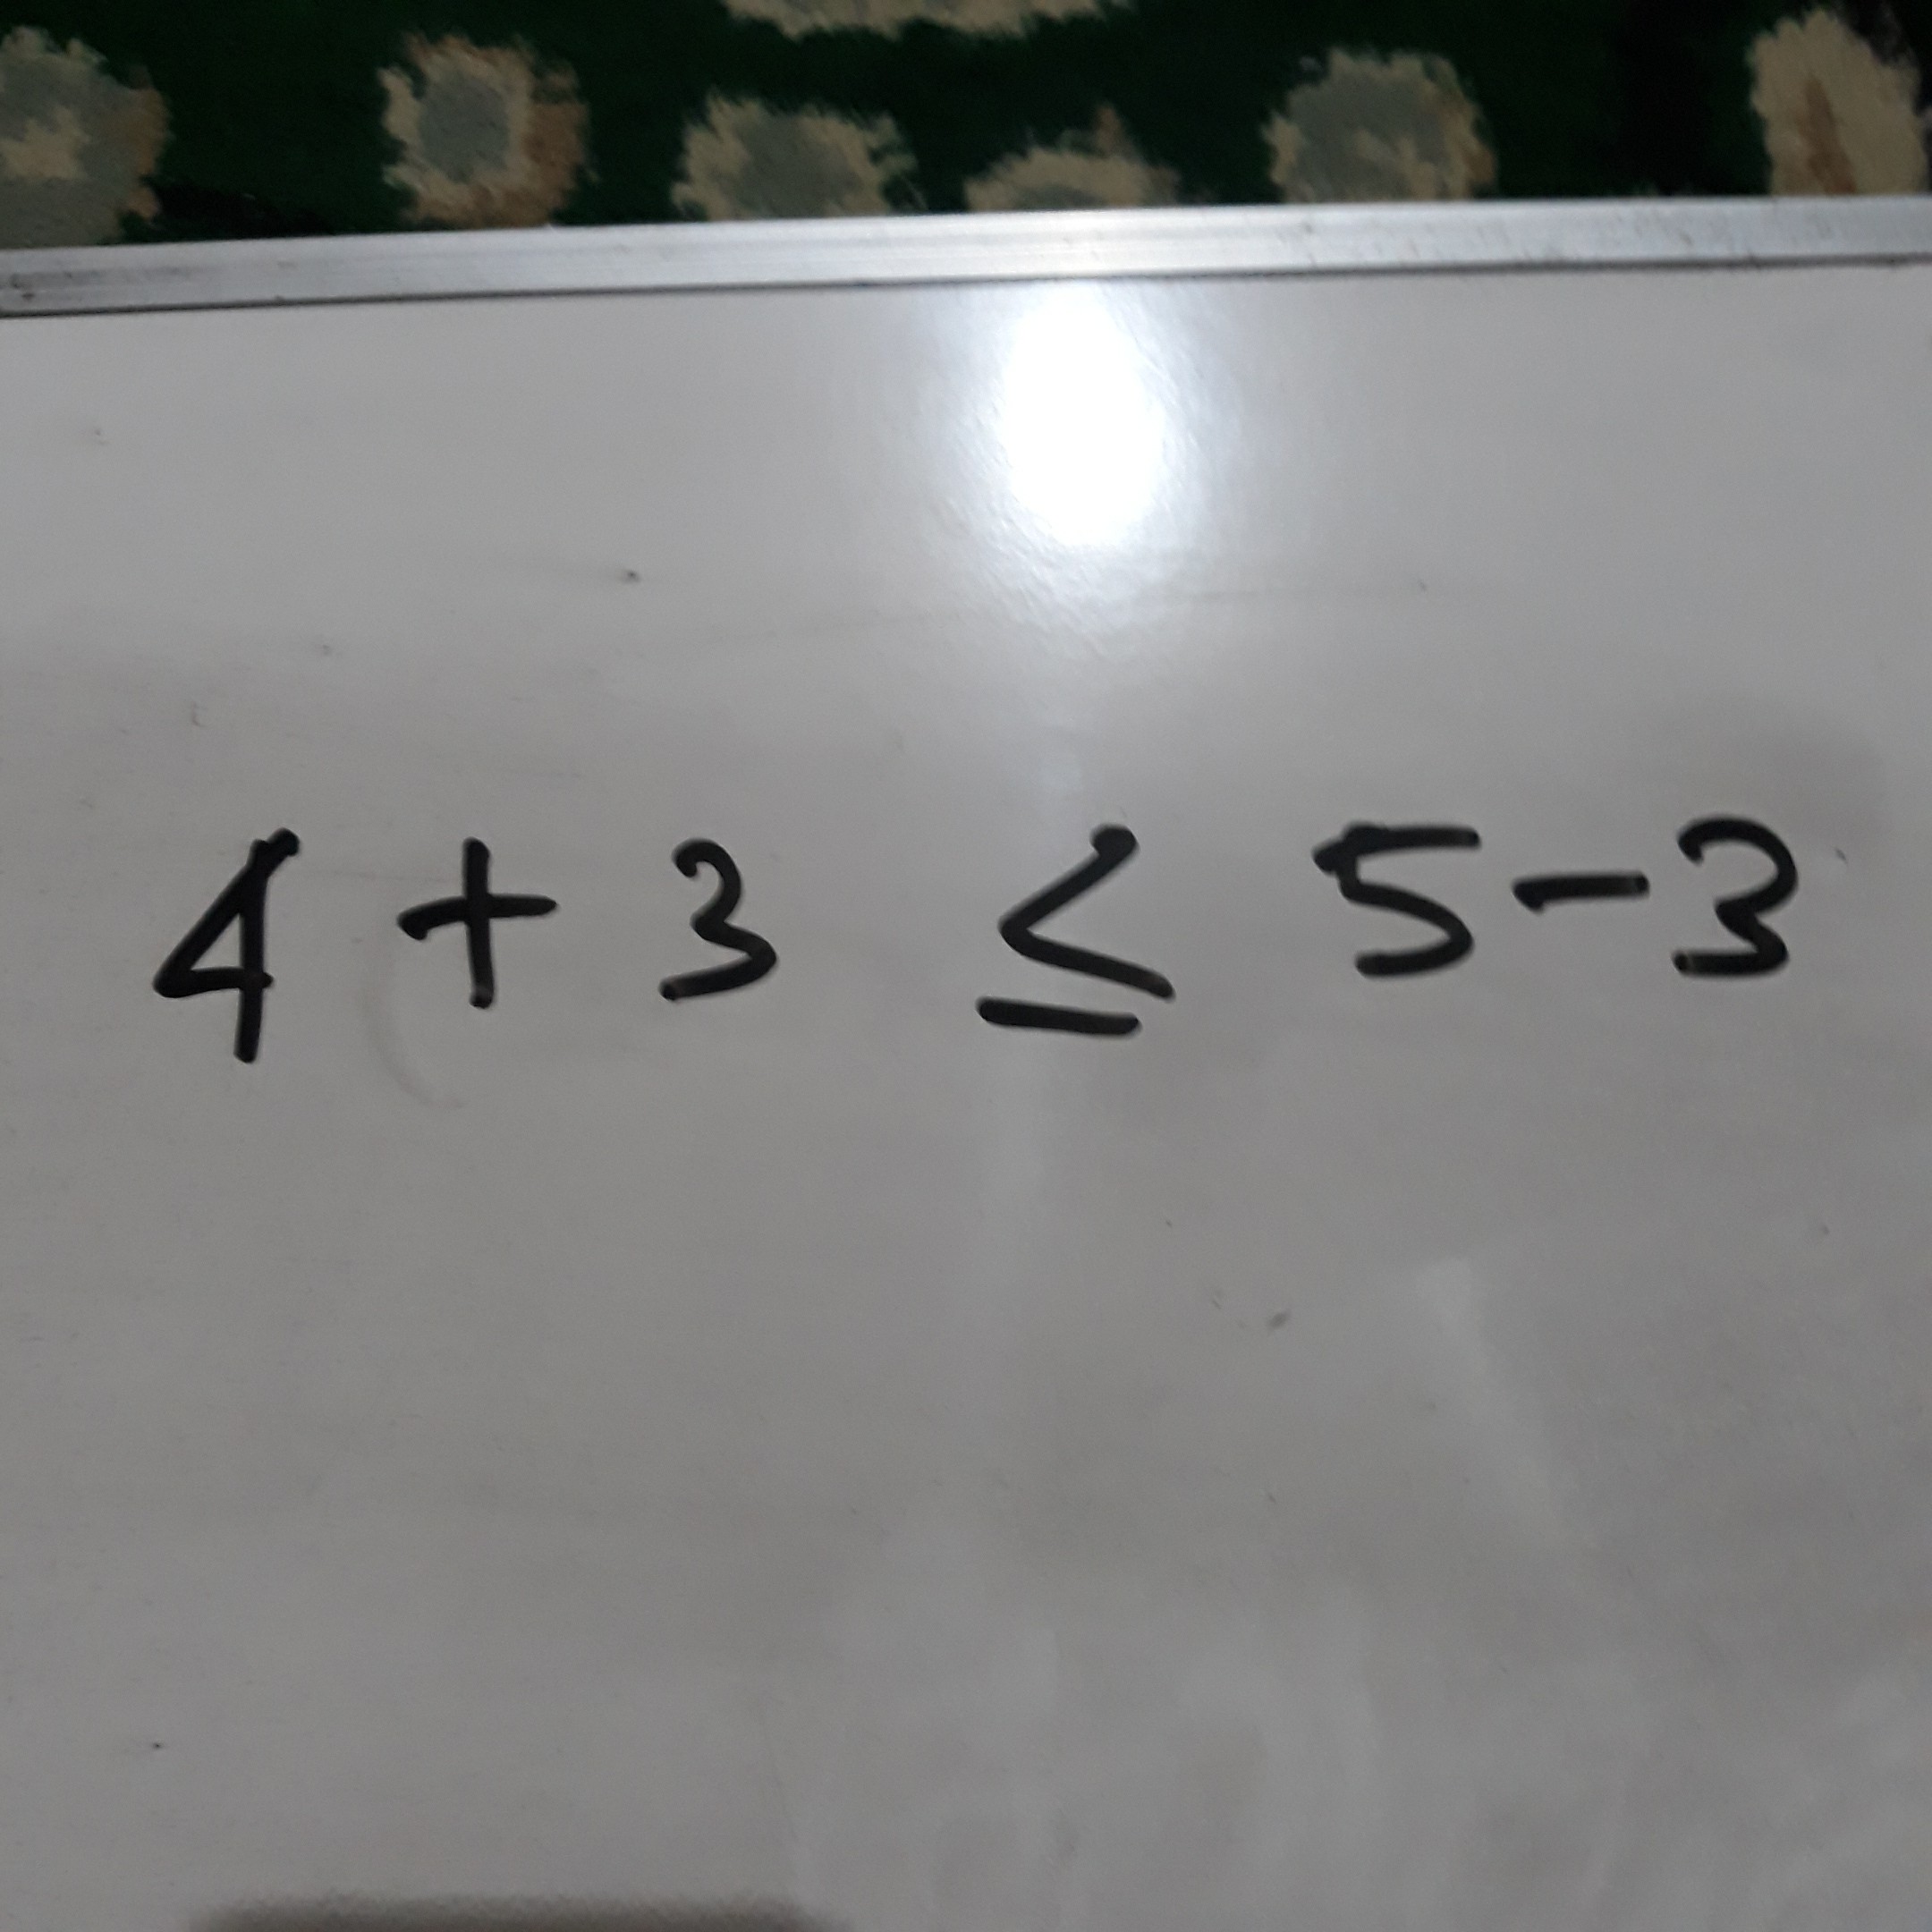 4 + 3 ≤ 5 - 3